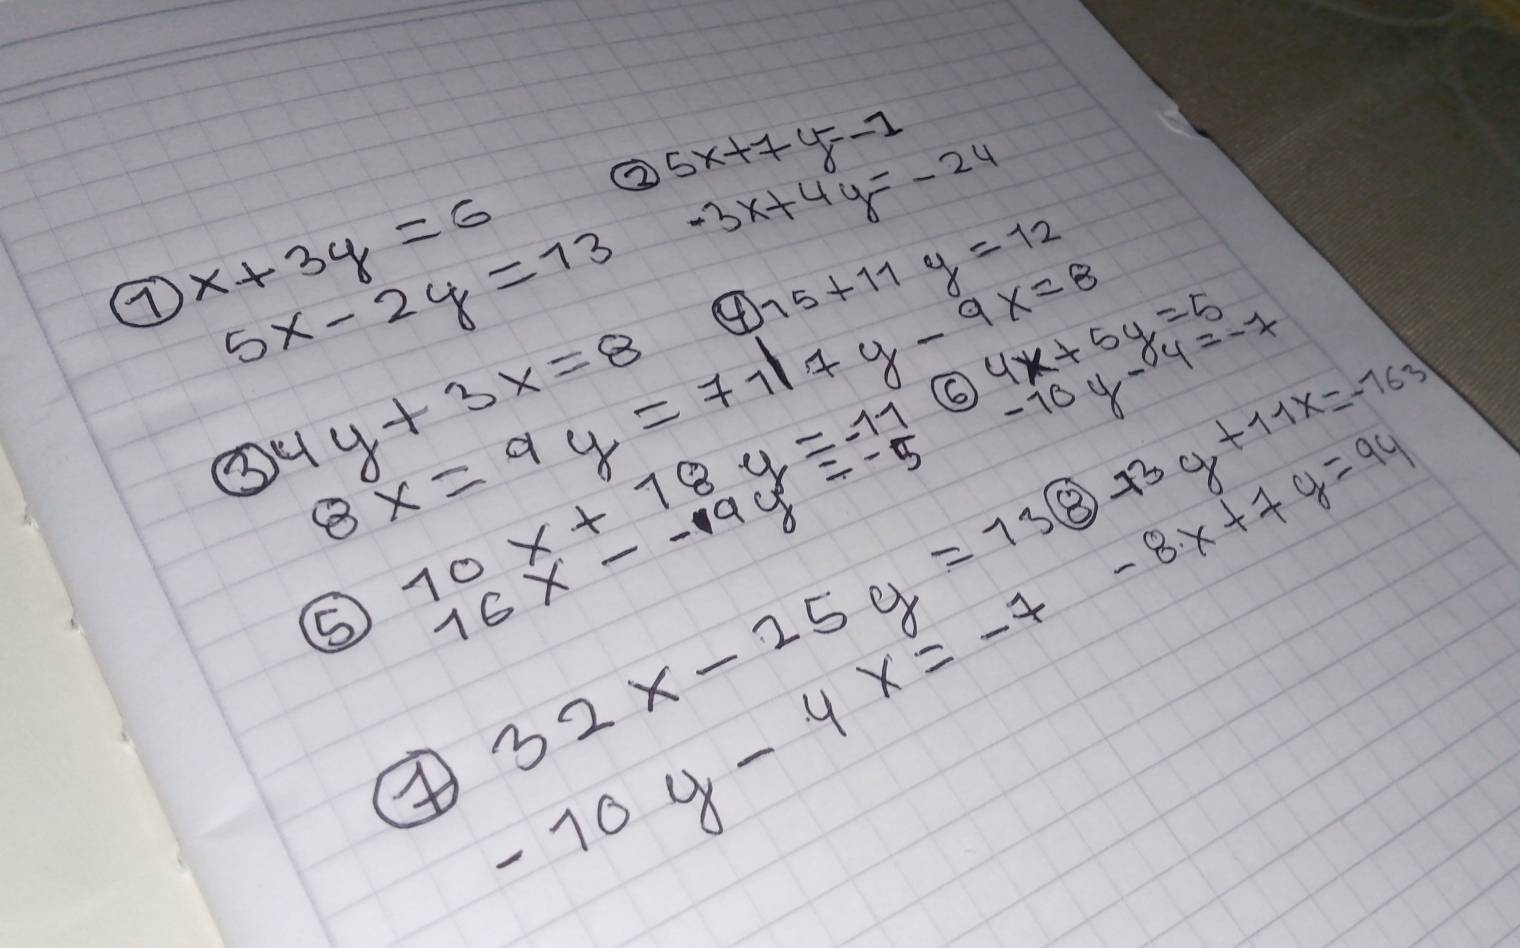 ① x+3y=6
5x-2y=13
② 5x+7y=-1
-3x+4y=-24
③ 4y+3x=8
8x=9y=71
④ 15+11y=12
7y-9x=8
⑤ 10x+18y=-11
16x--9y=-5
⑥ 4x+5y=5
-10y-4=-7
⑦ 32x-25y=13
-10y-4x=-7
⑧ -13y+11x=-163
-8x+7y=94